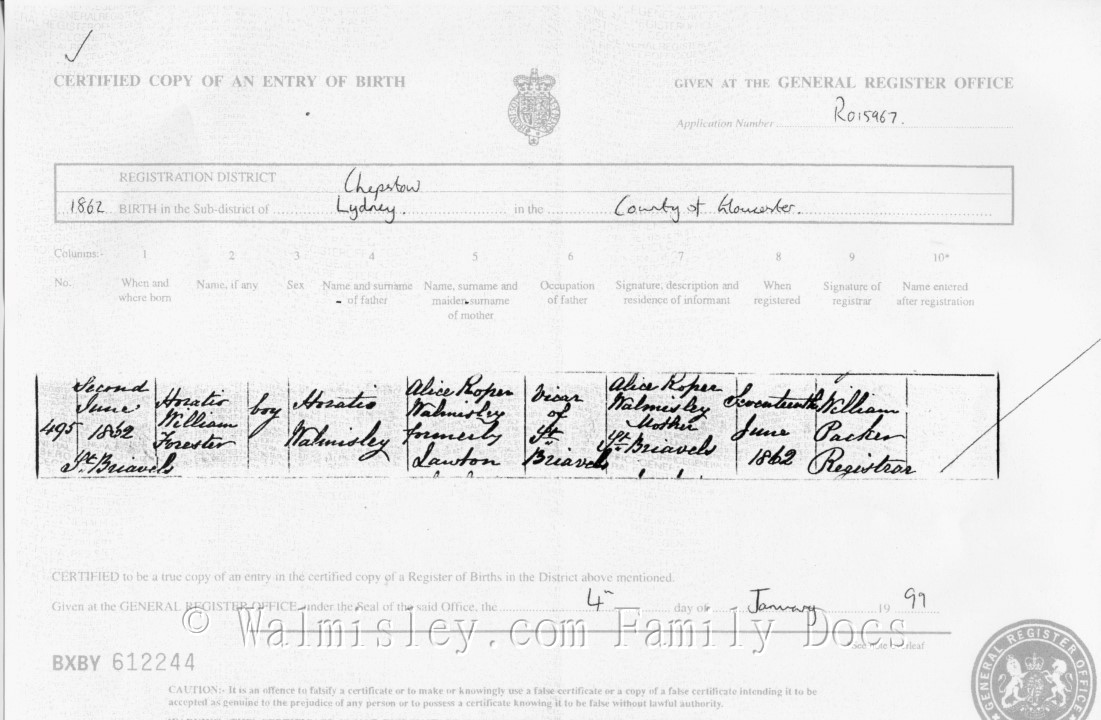 CERTIFIED COPY OF AN ENTRY OF BIRTH
GIVEN AT THE GENERAL REGISTER OFFICE
Application Number R015967.
REGISTRATION DISTRICT Chepstow
1862 BIRTH in the Sub-district of Lydney. in the County of Gloucester.
Columns:- 1 2 3 4 5 6 7 8 9 10*
No. When and where born Name, if any Sex Name and surname of father Name, surname and maiden surname of mother Occupation of father Signature, description and residence of informant When registered Signature of registrar Name entered after registration
495 Second June 1862 St. Briavels Horatio William Forester boy Horatio Walmisley Alice Roper Walmisley formerly Lawton Vicar of St. Briavels Alice Roper Walmisley Mother St. Briavels Seventeenth June 1862 William Packer Registrar
CERTIFIED to be a true copy of an entry in the certified copy of a Register of Births in the District above mentioned.
Given at the GENERAL REGISTER OFFICE, under the Seal of the said Office, the 4 day of January 19 99
© Walmisley.com Family Docs
See note overleaf
BXBY 612244
GENERAL REGISTER OFFICE
CAUTION:- It is an offence to falsify a certificate or to make or knowingly use a false certificate or a copy of a false certificate intending it to be
accepted as genuine to the prejudice of any person or to possess a certificate knowing it to be false without lawful authority.